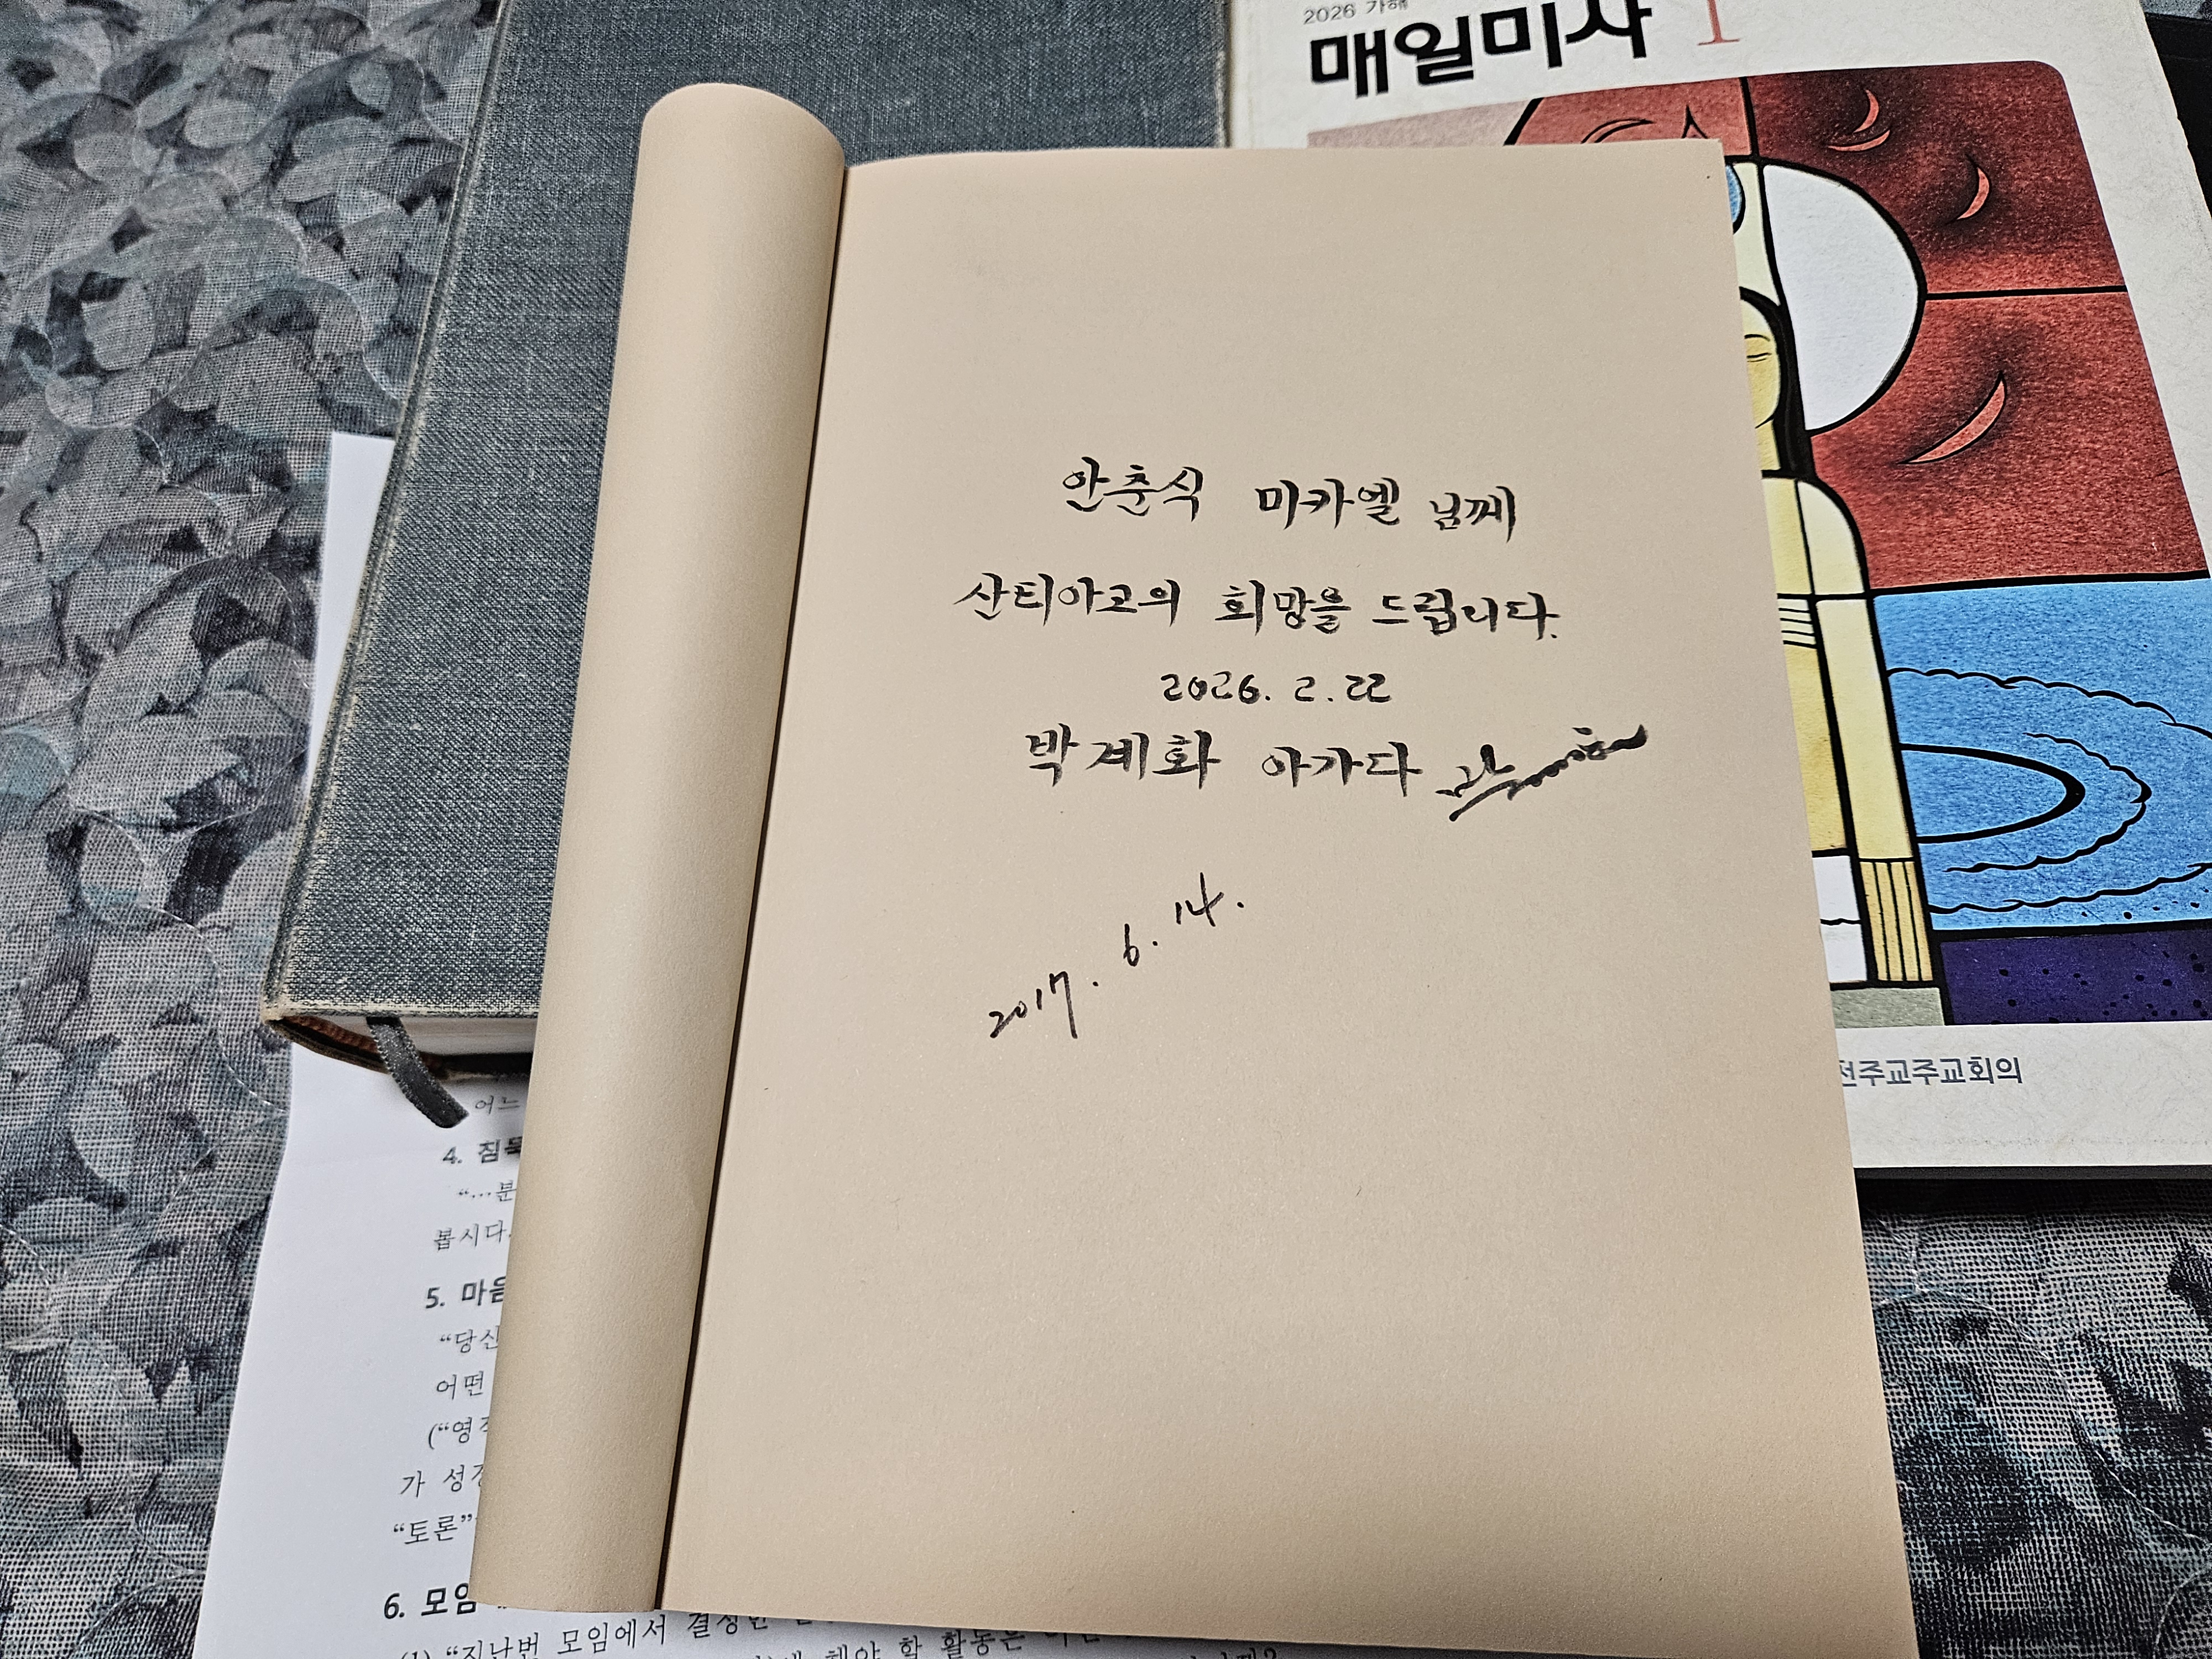 2026 가해
매일미사 1
안춘식 미카엘 님께
산티아고의 희망을 드립니다.
2026. 2. 22
박계화 아가다
2017. 6. 14.
천주교주교회의
어느
4. 침묵
“…분
봅시다.
5. 마음
“당신
어떤
(“영적
가 성경
“토론”
6. 모임
(1) “지난번 모임에서 결정한
해야 할 활동은